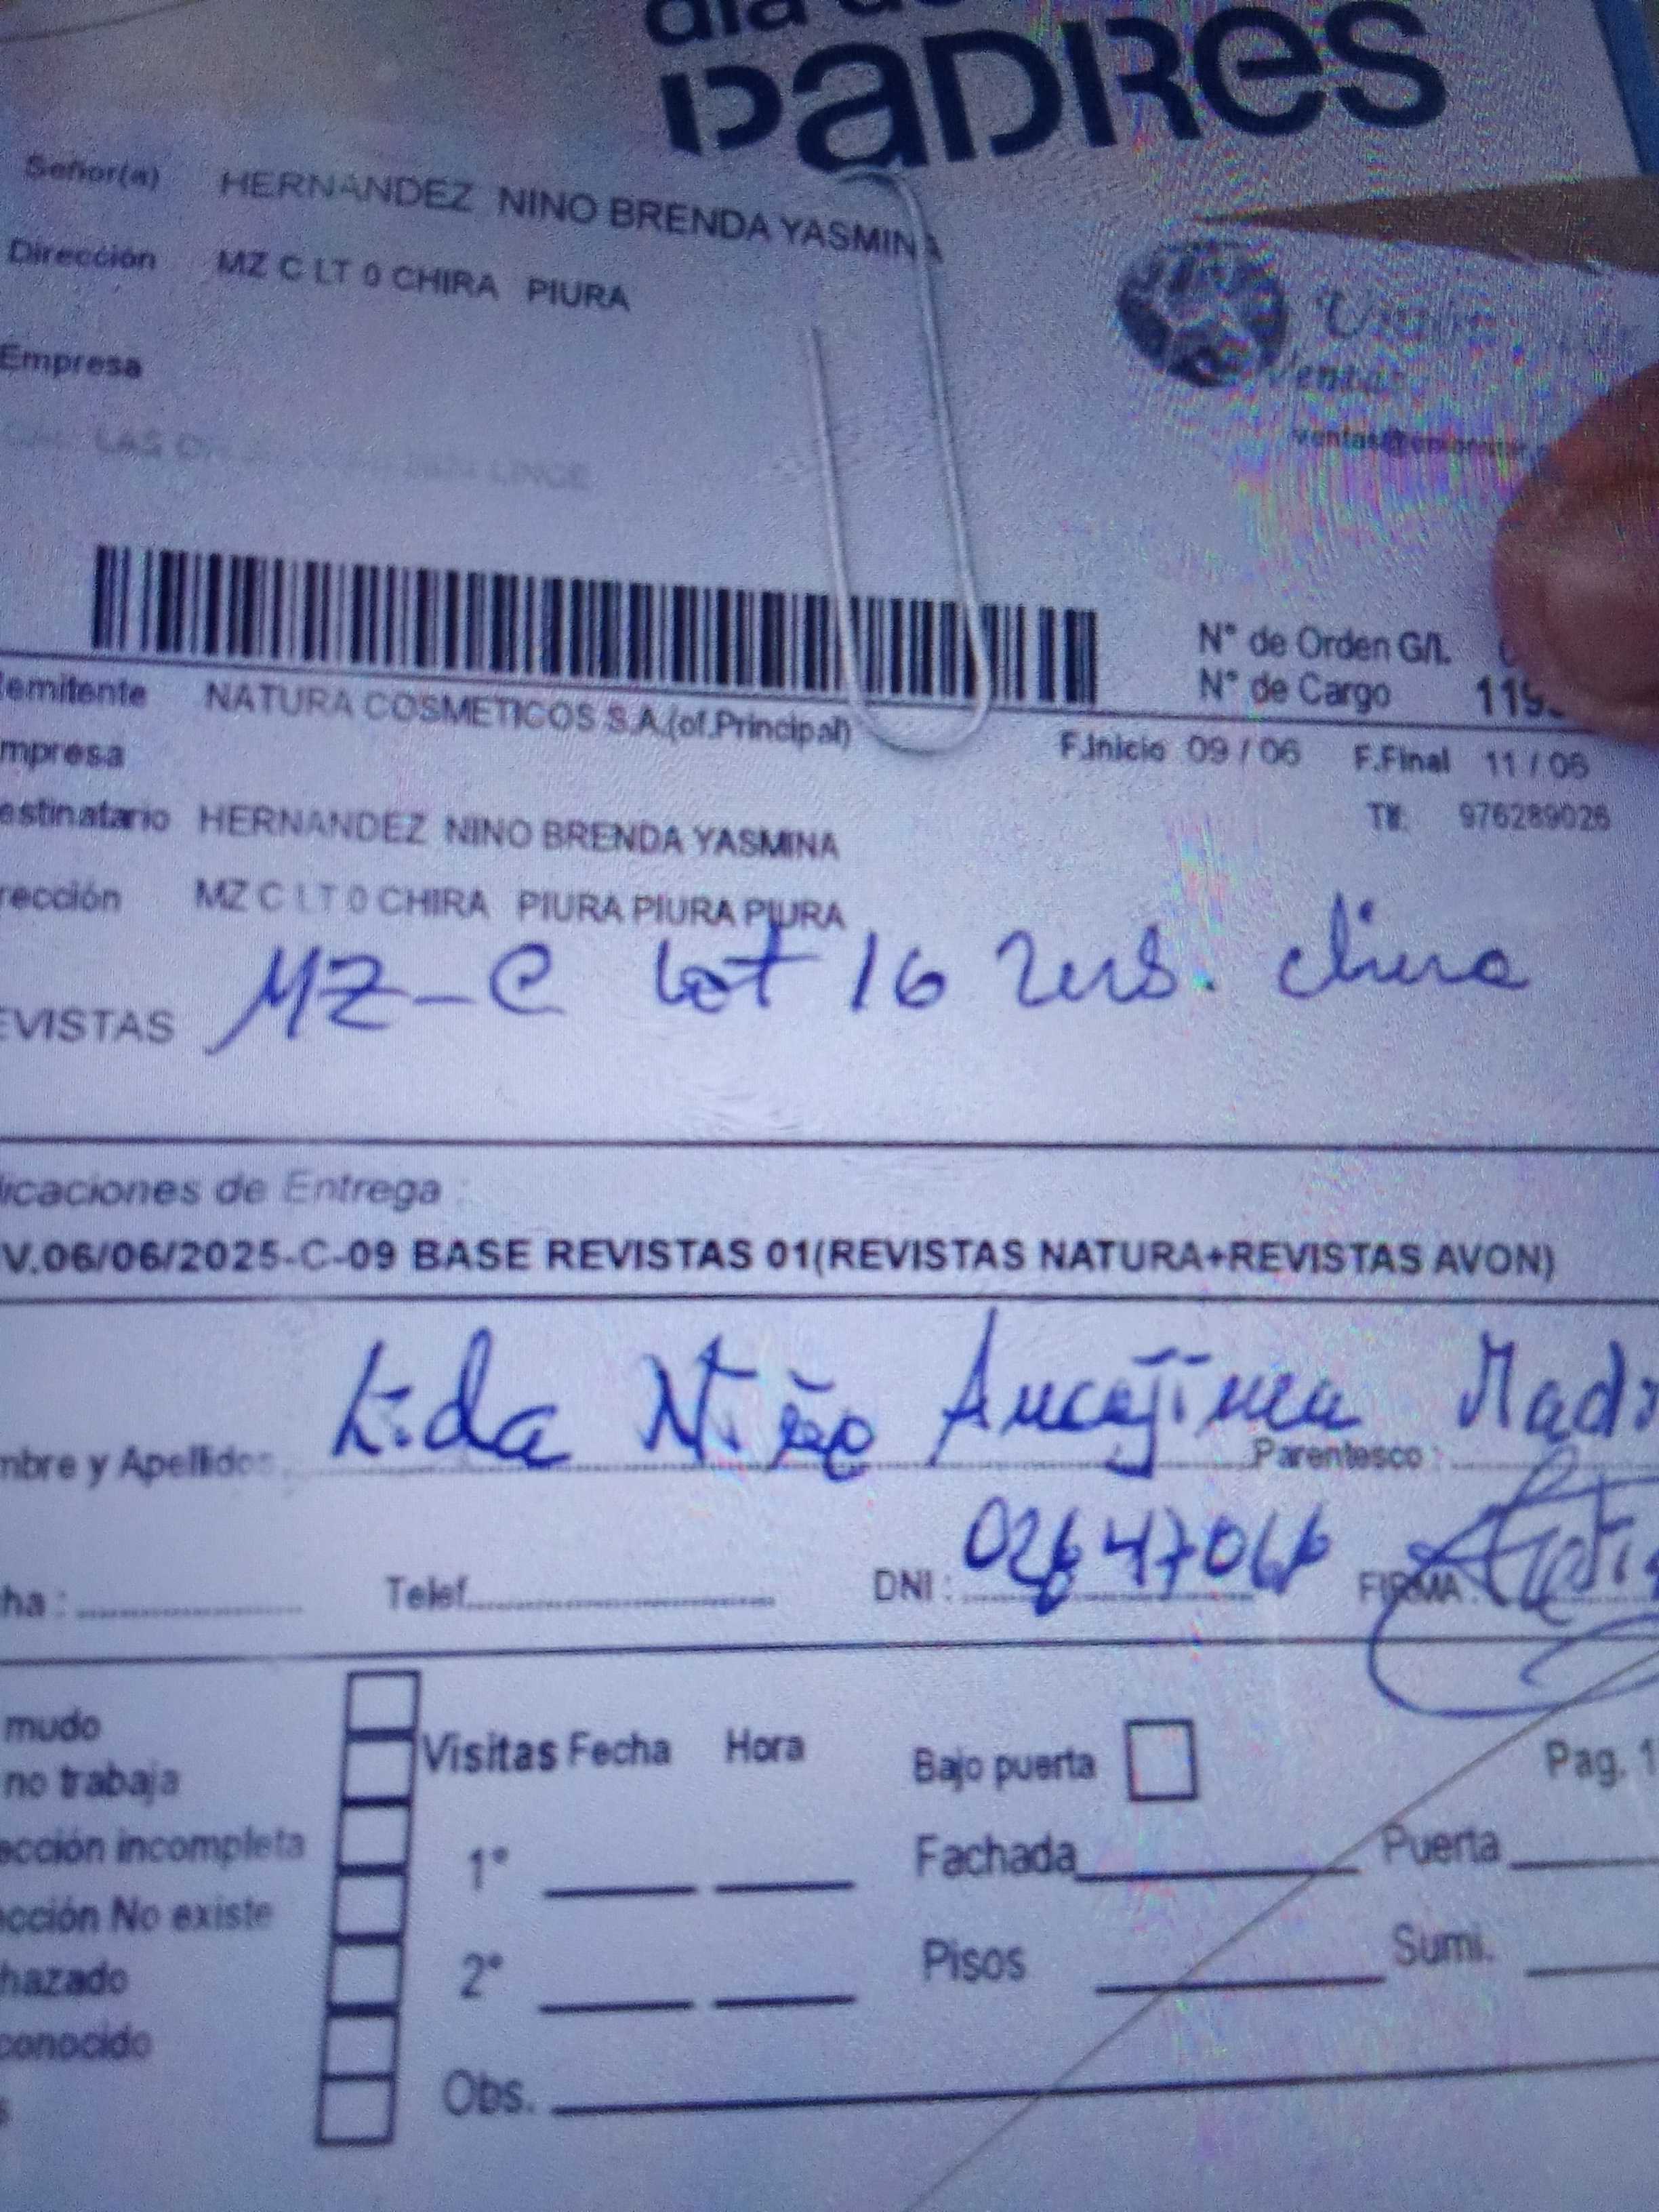 día de
PADRES
Señor(a) HERNANDEZ NINO BRENDA YASMINA
Dirección MZ C LT 0 CHIRA PIURA
Empresa
LAS LINCE
ventas
N° de Orden G/I.
N° de Cargo 119
emitente NATURA COSMETICOS S.A.(of.Principal)
F.Inicio 09 / 06 F.Final 11 / 06
mpresa
Tlf: 976289026
estinatario HERNANDEZ NINO BRENDA YASMINA
rección MZ C LT 0 CHIRA PIURA PIURA PIURA
MZ-C Lot 16 chira
EVISTAS
licaciones de Entrega :
V.06/06/2025-C-09 BASE REVISTAS 01(REVISTAS NATURA+REVISTAS AVON)
Lida Niño Madr
mbre y Apellidos Parentesco :
ha : Telef. DNI : FIRMA :
mudo
no trabaja
Visitas Fecha Hora Bajo puerta Pag. 1
ección incompleta 1° Fachada Puerta
cción No existe
hazado 2° Pisos Sumi.
conocido
s Obs.